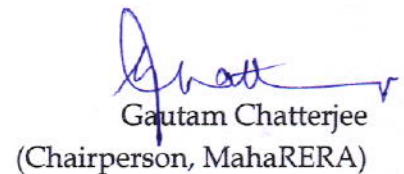 Gautam Chatterjee
(Chairperson, MahaRERA)